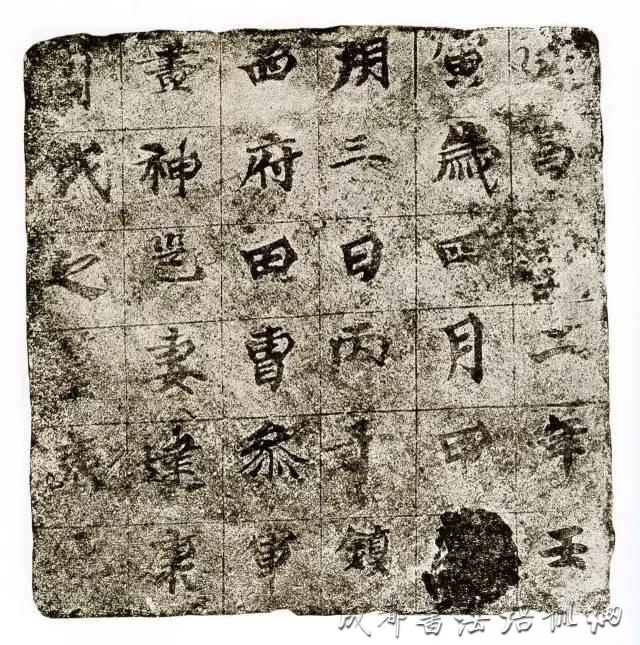 昌二年壬
寅歲四月甲
朔三日丙子鎮
西府田曹參軍
畫神邕妻建康
周氏之
成都书法培训网